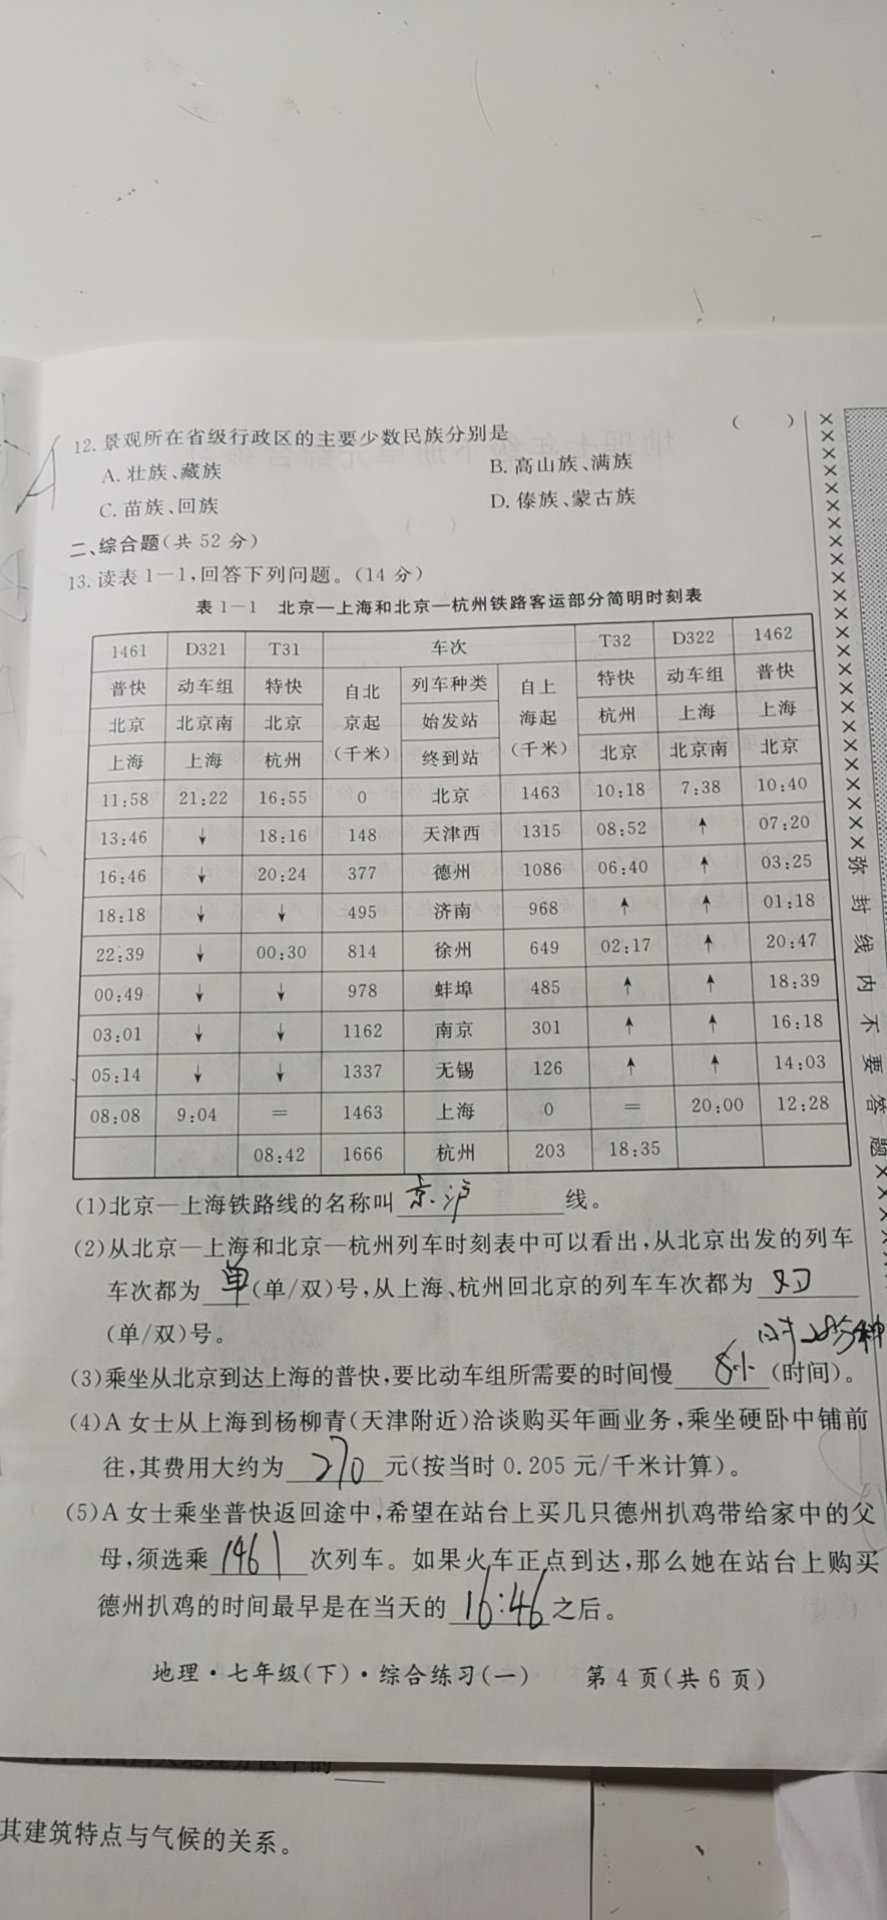 12.景观所在省级行政区的主要少数民族分别是 ( )
A
A.壮族、藏族 B.高山族、满族
C.苗族、回族 D.傣族、蒙古族
二、综合题(共52分)
13.读表1—1,回答下列问题。(14分)
表1—1 北京—上海和北京—杭州铁路客运部分简明时刻表
1461 D321 T31 车次 T32 D322 1462
普快 动车组 特快 自北京起(千米) 列车种类 自上海起(千米) 特快 动车组 普快
北京 北京南 北京 始发站 杭州 上海 上海
上海 上海 杭州 终到站 北京 北京南 北京
11:58 21:22 16:55 0 北京 1463 10:18 7:38 10:40
13:46 ↓ 18:16 148 天津西 1315 08:52 ↑ 07:20
16:46 ↓ 20:24 377 德州 1086 06:40 ↑ 03:25
18:18 ↓ ↓ 495 济南 968 ↑ ↑ 01:18
22:39 ↓ 00:30 814 徐州 649 02:17 ↑ 20:47
00:49 ↓ ↓ 978 蚌埠 485 ↑ ↑ 18:39
03:01 ↓ ↓ 1162 南京 301 ↑ ↑ 16:18
05:14 ↓ ↓ 1337 无锡 126 ↑ ↑ 14:03
08:08 9:04 = 1463 上海 0 = 20:00 12:28
08:42 1666 杭州 203 18:35
(1)北京—上海铁路线的名称叫 京沪 线。
(2)从北京—上海和北京—杭州列车时刻表中可以看出,从北京出发的列车
车次都为 单 (单/双)号,从上海、杭州回北京的列车车次都为 双
(单/双)号。
(3)乘坐从北京到达上海的普快,要比动车组所需要的时间慢 8小时28分种 (时间)。
(4)A女士从上海到杨柳青(天津附近)洽谈购买年画业务,乘坐硬卧中铺前
往,其费用大约为 270 元(按当时0.205元/千米计算)。
(5)A女士乘坐普快返回途中,希望在站台上买几只德州扒鸡带给家中的父
母,须选乘 1461 次列车。如果火车正点到达,那么她在站台上购买
德州扒鸡的时间最早是在当天的 16:46 之后。
地理·七年级(下)·综合练习(一) 第4页(共6页)
弥封线内不要答题
其建筑特点与气候的关系。